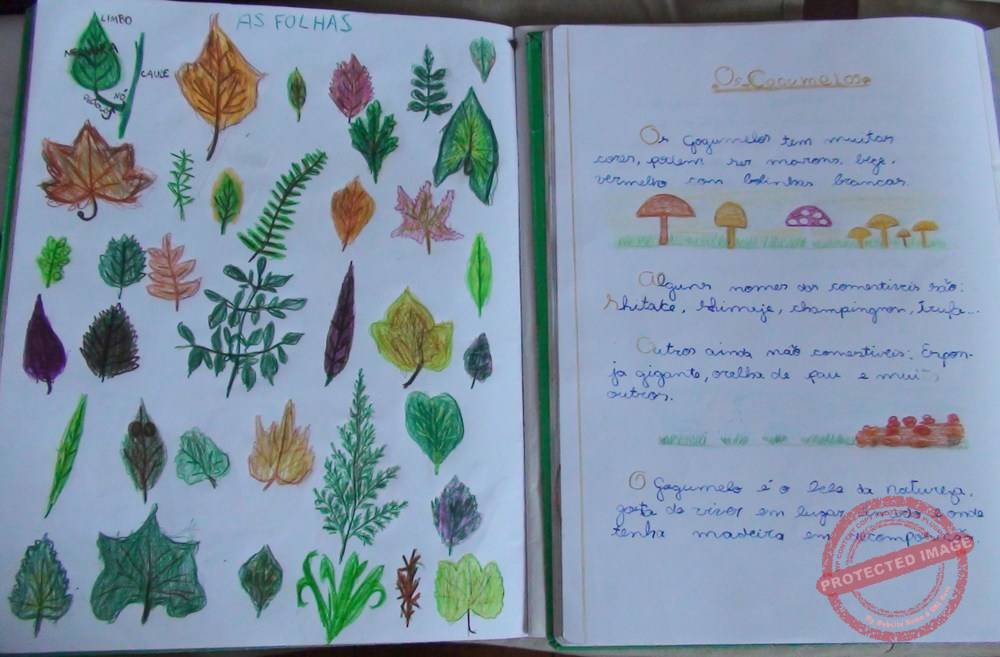 AS FOLHAS
LIMBO
NERVURA
CAULE
NÓ
Os Cogumelos
Os Gogumelos tem muitas
cores, podem ser marons, bege,
vermelho com bolinhas brancas.
Alguns nomes dos comestiveis são:
Shitake, Shimeje, champingnon, trufa...
Outros ainda não comestiveis: Espon-
ja gigante, orelha de pau e mui
outros.
O Gogumelo é o da natureza,
gosta de viver em lugar úmido e onde
tenha madeira em decomposição.
PROTECTED IMAGE